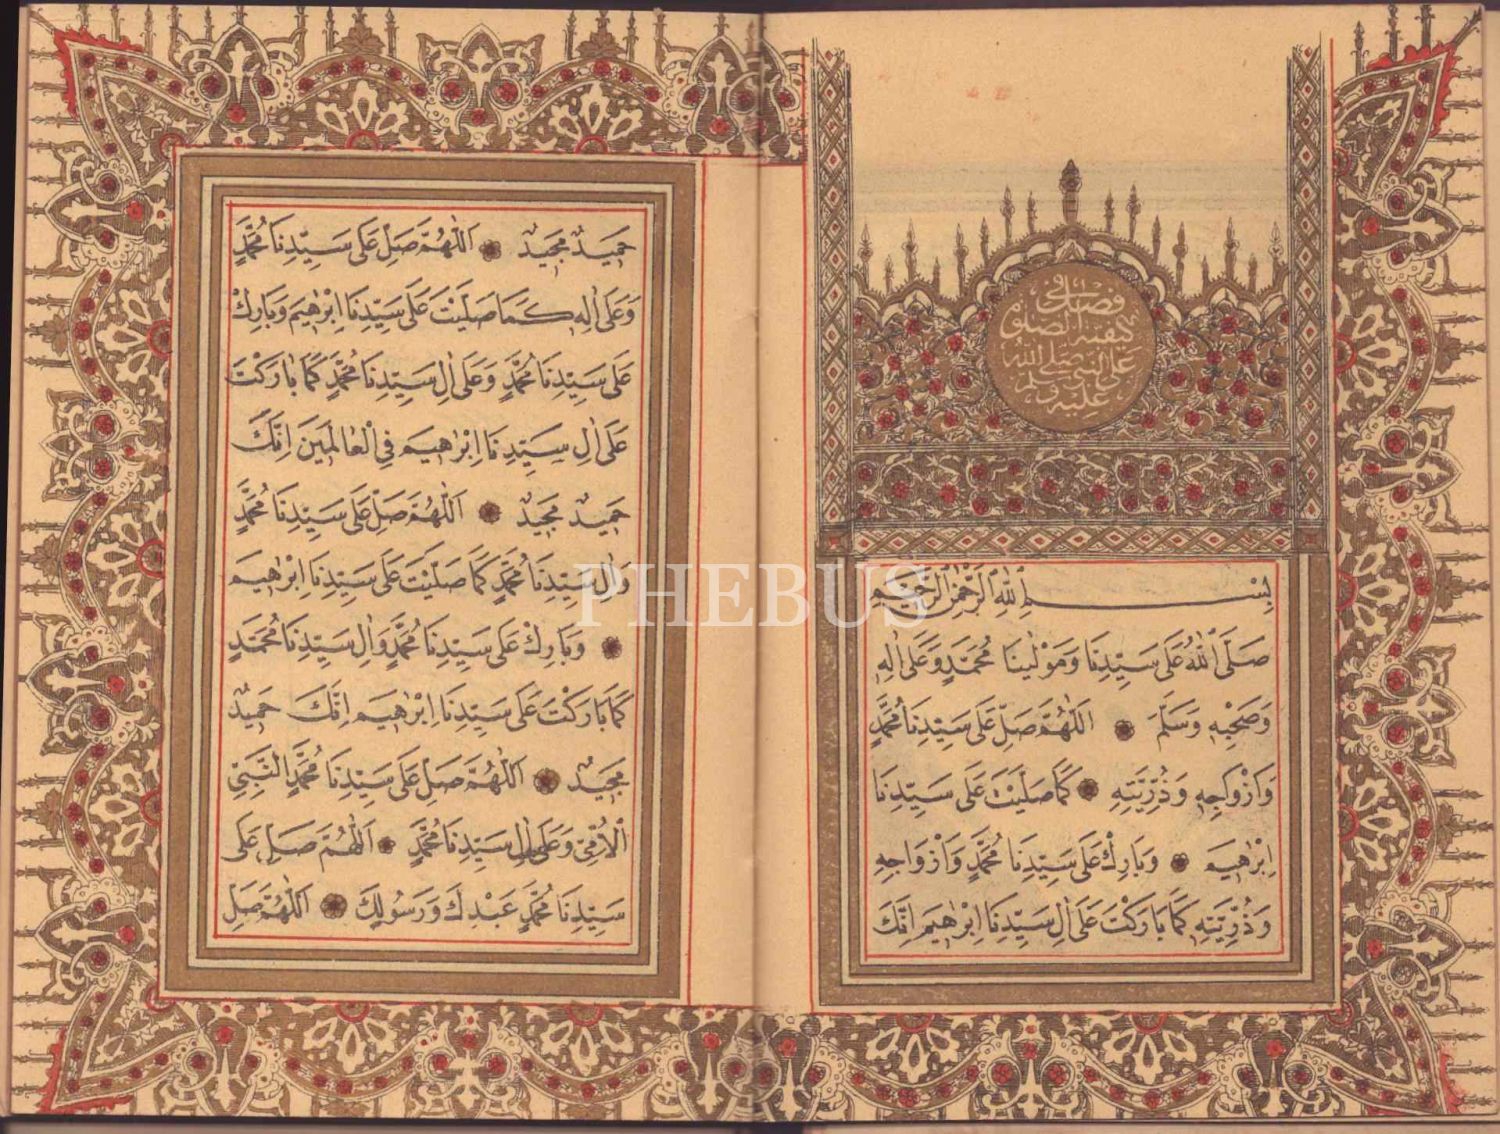 فصل في
كيفية الصلوة
على النبي صلى الله
عليه وسلم
بِسْمِ اللهِ الرَّحْمٰنِ الرَّحِيمِ
صَلَّى اللهُ عَلَى سَيِّدِنَا وَمَوْلٰينَا مُحَمَّدٍ وَعَلَى اٰلِهِ
وَصَحْبِهِ وَسَلَّمَ ۞ اَللّٰهُمَّ صَلِّ عَلَى سَيِّدِنَا مُحَمَّدٍ
وَاَزْوَاجِهِ وَذُرِّيَّتِهِ ۞ كَمَا صَلَّيْتَ عَلَى سَيِّدِنَا
اِبْرٰهِيمَ ۞ وَبَارِكْ عَلَى سَيِّدِنَا مُحَمَّدٍ وَاَزْوَاجِهِ
وَذُرِّيَّتِهِ كَمَا بَارَكْتَ عَلَى اٰلِ سَيِّدِنَا اِبْرٰهِيمَ اِنَّكَ
حَمِيدٌ مَجِيدٌ ۞ اَللّٰهُمَّ صَلِّ عَلَى سَيِّدِنَا مُحَمَّدٍ
وَعَلَى اٰلِهِ كَمَا صَلَّيْتَ عَلَى سَيِّدِنَا اِبْرٰهِيمَ وَبَارِكْ
عَلَى سَيِّدِنَا مُحَمَّدٍ وَعَلَى اٰلِ سَيِّدِنَا مُحَمَّدٍ كَمَا بَارَكْتَ
عَلَى اٰلِ سَيِّدِنَا اِبْرٰهِيمَ فِي الْعَالَمِينَ اِنَّكَ
حَمِيدٌ مَجِيدٌ ۞ اَللّٰهُمَّ صَلِّ عَلَى سَيِّدِنَا مُحَمَّدٍ
وَاٰلِ سَيِّدِنَا مُحَمَّدٍ كَمَا صَلَّيْتَ عَلَى سَيِّدِنَا اِبْرٰهِيمَ
۞ وَبَارِكْ عَلَى سَيِّدِنَا مُحَمَّدٍ وَاٰلِ سَيِّدِنَا مُحَمَّدٍ
كَمَا بَارَكْتَ عَلَى سَيِّدِنَا اِبْرٰهِيمَ اِنَّكَ حَمِيدٌ
مَجِيدٌ ۞ اَللّٰهُمَّ صَلِّ عَلَى سَيِّدِنَا مُحَمَّدٍ النَّبِيِّ
الْاُمِّيِّ وَعَلَى اٰلِ سَيِّدِنَا مُحَمَّدٍ ۞ اَللّٰهُمَّ صَلِّ عَلَى
سَيِّدِنَا مُحَمَّدٍ عَبْدِكَ وَرَسُولِكَ ۞ اَللّٰهُمَّ صَلِّ
PHEBUS